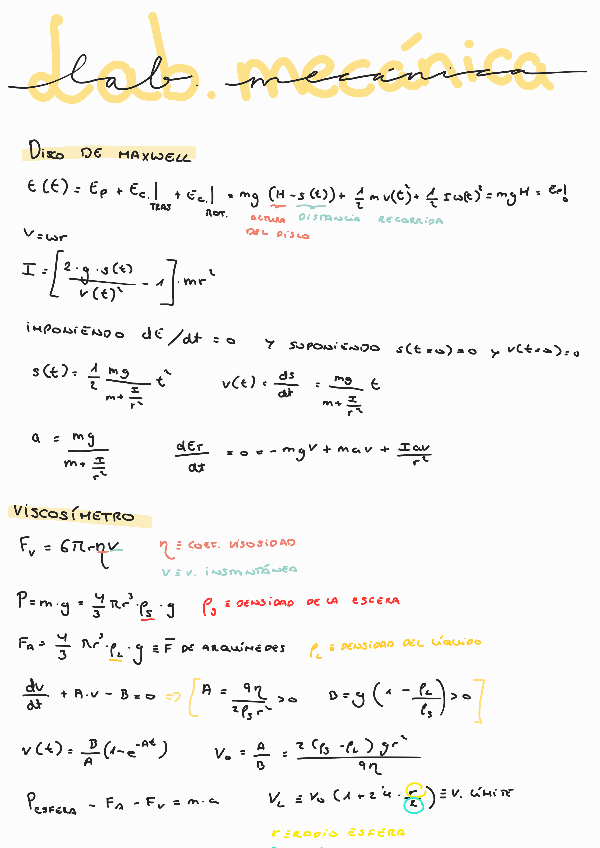 lab. mecánica
DISCO DE MAXWELL
E(t) = Ep + Ec.|TRAS + Ec.|ROT. = mg (H - s(t)) + 1/2 m v(t)² + 1/2 I ω(t)² = mgH = Ep|₀
ALTURA DEL DISCO
DISTANCIA RECORRIDA
V = ωr
I = [2·g·s(t)/v(t)² - 1]·mr²
IMPONIENDO dE/dt = 0 Y SUPONIENDO s(t=0)=0 y v(t=0)=0
s(t) = 1/2 mg/(m + I/r²) t² v(t) = ds/dt = mg/(m + I/r²) t
a = mg/(m + I/r²) dEr/dt = 0 = -mgv + mav + Iav/r²
VISCOSÍMETRO
Fv = 6πrηv η ≡ COEF. VISOSIDAD
V ≡ V. INSTANTÁNEA
P = m·g = 4/3 πr³·ρs·g ρs ≡ DENSIDAD DE LA ESFERA
FA = 4/3 πr³·ρL·g ≡ F̄ DE ARQUÍMEDES ρL ≡ DENSIDAD DEL LÍQUIDO
dv/dt + A·v - B = 0 => [A = 9η/2ρs r² > 0 B = g (1 - ρL/ρs) > 0]
v(t) = B/A (1 - e^-At) V₀ = A/B = 2(ρs - ρL) g r²/9η
P ESFERA - FA - FV = m·a VL = V₀ (1 + 2'4·r/2) ≡ V. LÍMITE
r ≡ RADIO ESFERA